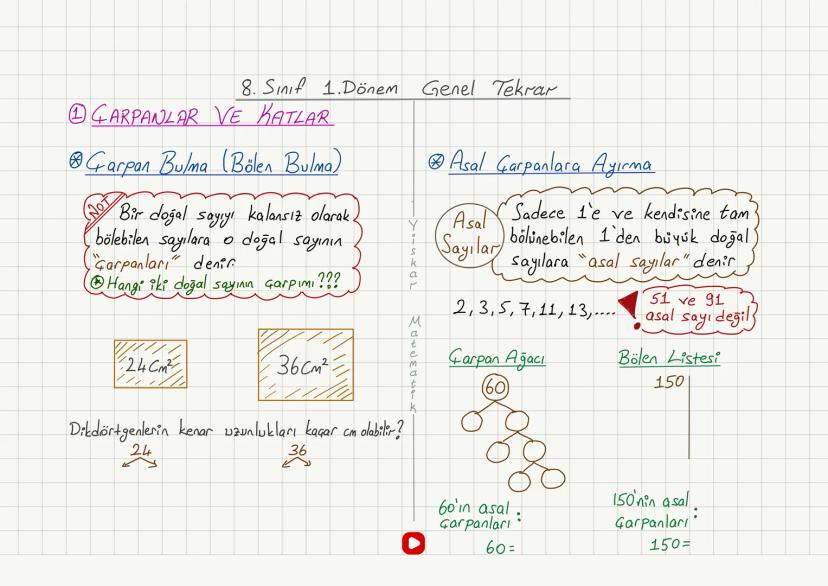 8. Sınıf 1.Dönem Genel Tekrar
1 ÇARPANLAR VE KATLAR
Çarpan Bulma (Bölen Bulma)
NOT
Bir doğal sayıyı kalansız olarak
bölebilen sayılara o doğal sayının
"çarpanları" denir.
Hangi iki doğal sayının çarpımı???
24cm²
36cm²
Dikdörtgenlerin kenar uzunlukları kaçar cm olabilir?
24
36
Yıskar Matematik
Asal Çarpanlara Ayırma
Asal
Sayılar
Sadece 1'e ve kendisine tam
bölünebilen 1'den büyük doğal
sayılara "asal sayılar" denir
2,3,5,7,11,13,....
51 ve 91
asal sayı değil
Çarpan Ağacı
60
60'ın asal
Çarpanları :
60=
Bölen Listesi
150
150'nin asal
Çarpanları :
150=